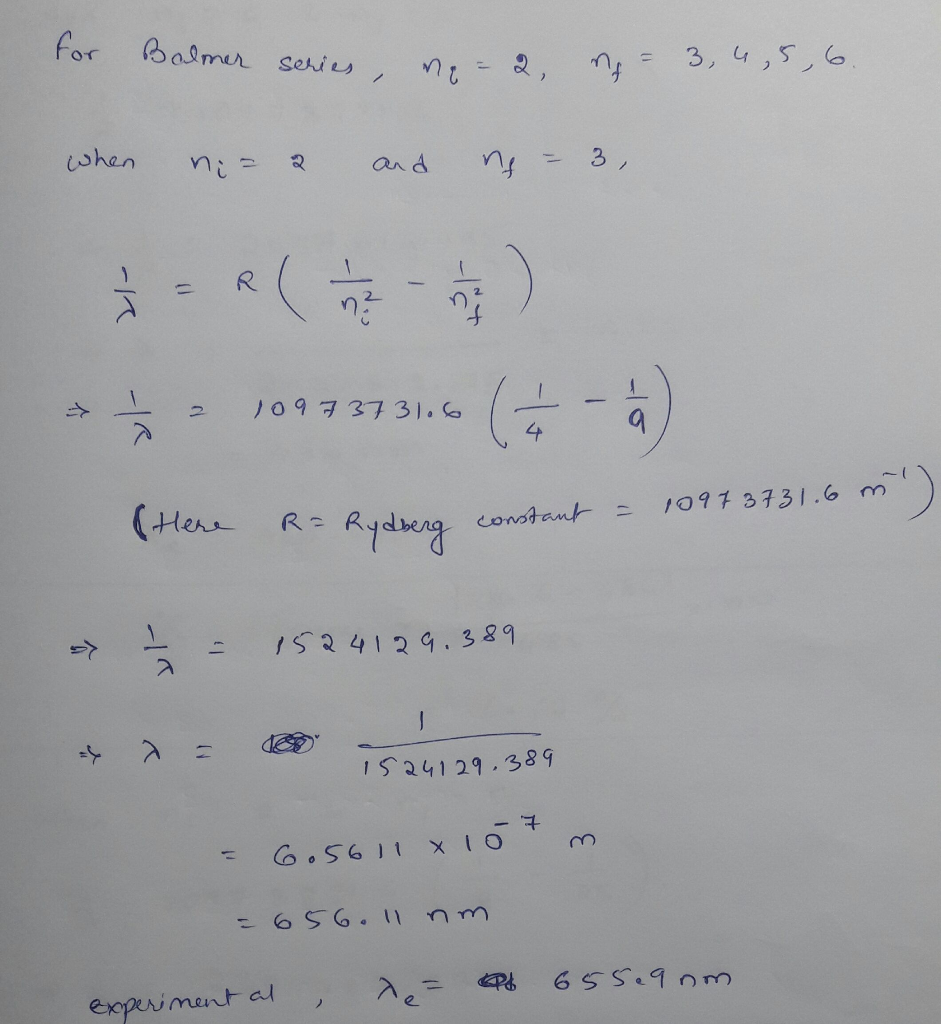 For Balmer series, nᵢ = 2, n_f = 3, 4, 5, 6.
when nᵢ = 2 and n_f = 3,
1/λ = R ( 1/nᵢ² - 1/n_f² )
⇒ 1/λ = 10973731.6 ( 1/4 - 1/9 )
(Here R = Rydberg constant = 10973731.6 m⁻¹)
⇒ 1/λ = 1524129.389
⇒ λ = 1/1524129.389
= 6.5611 × 10⁻⁷ m
= 656.11 nm
experimental, λₑ = 655.9 nm